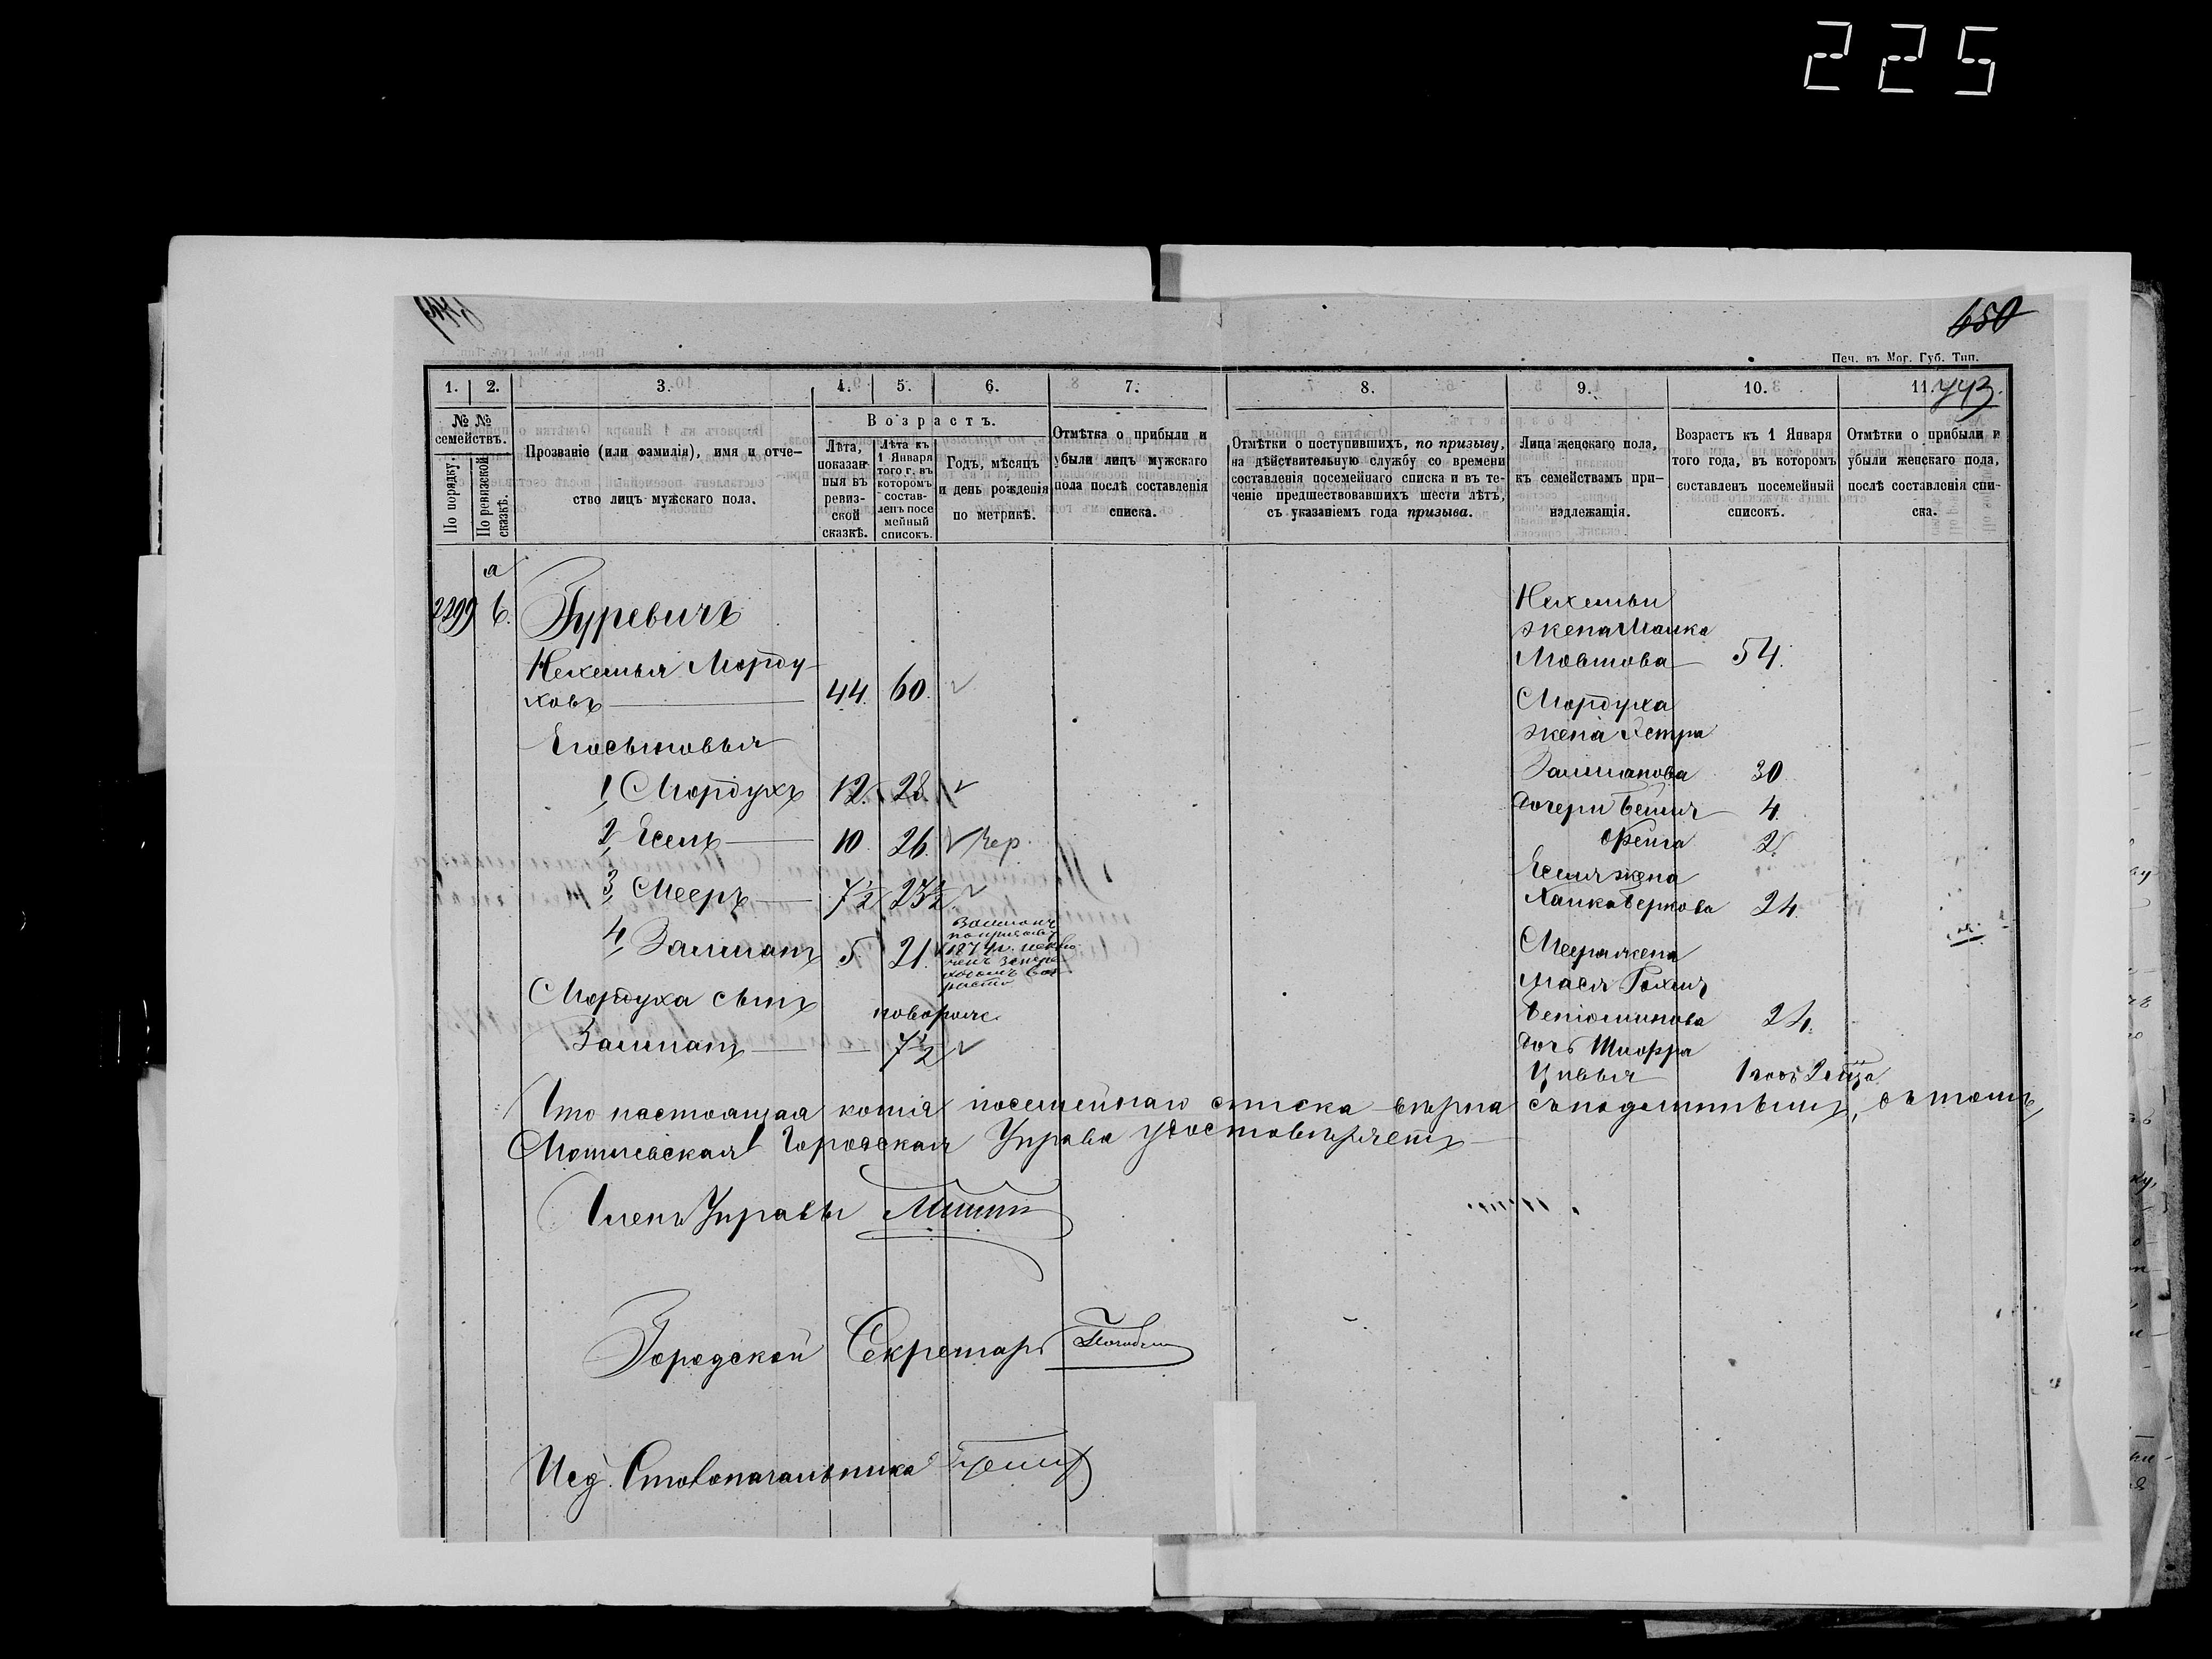 225
650
Печ. въ Мог. Губ. Тип.
443.
1. 2. 3. 4. 5. 6. 7. 8. 9. 10. 11.
№ № семействъ.
По порядку.
По ревизской сказкѣ.
Прозваніе (или фамилія), имя и отче-
ство лицъ мужскаго пола.
Возрастъ.
Лѣта,
показан-
ныя въ
ревиз-
ской
сказкѣ.
Лѣта къ
1 Января
того г. въ
которомъ
состав-
ленъ посе
мейный
списокъ.
Годъ, мѣсяцъ
и день рожденія
по метрикѣ.
Отмѣтка о прибыли и
убыли лицъ мужскаго
пола послѣ составленія
списка.
Отмѣтки о поступившихъ, по призыву,
на дѣйствительную службу со времени
составленія посемейнаго списка и въ те-
ченіе предшествовавшихъ шести лѣтъ,
съ указаніемъ года призыва.
Лица женскаго пола,
къ семействамъ при-
надлежащія.
Возрастъ къ 1 Января
того года, въ которомъ
составленъ посемейный
списокъ.
Отмѣтки о прибыли и
убыли женскаго пола,
послѣ составленія спи-
ска.
а
2299 6. Гуревичъ
Нехемья Морду-
ховъ 44. 60.
Его сыновья
1, Мордухъ 12. 28.
2, Есель 10. 26.
3, Мееръ 7½ 23½
4, Залманъ 5. 21.
Мордуха сынъ
новорож.
Залманъ 7½
Нехемьи
жена Малка
Мовшова 54.
Мордуха
жена Эстра
Залманова 30
дочери Бейля 4.
Фейга 2.
Еселя жена
Ханка Беркова 24.
Меера жена
Мася Рохля
Беніоминова 24.
дочь Шифра
Цивья 1 годъ 2 мѣц.
Что настоящая копія посемейнаго списка вѣрна съ подлиннымъ, въ томъ
Могилевская Городская Управа удостовѣряетъ
Членъ Управы
Городской Секретарь
Исд. Столоначальника